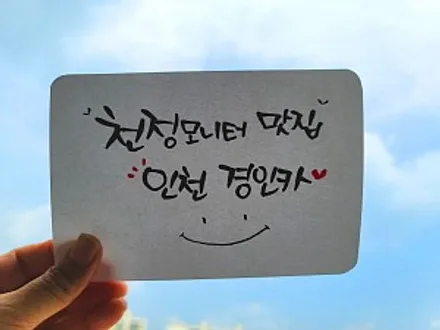 '천정모니터 맛집'
인천 경인카♥